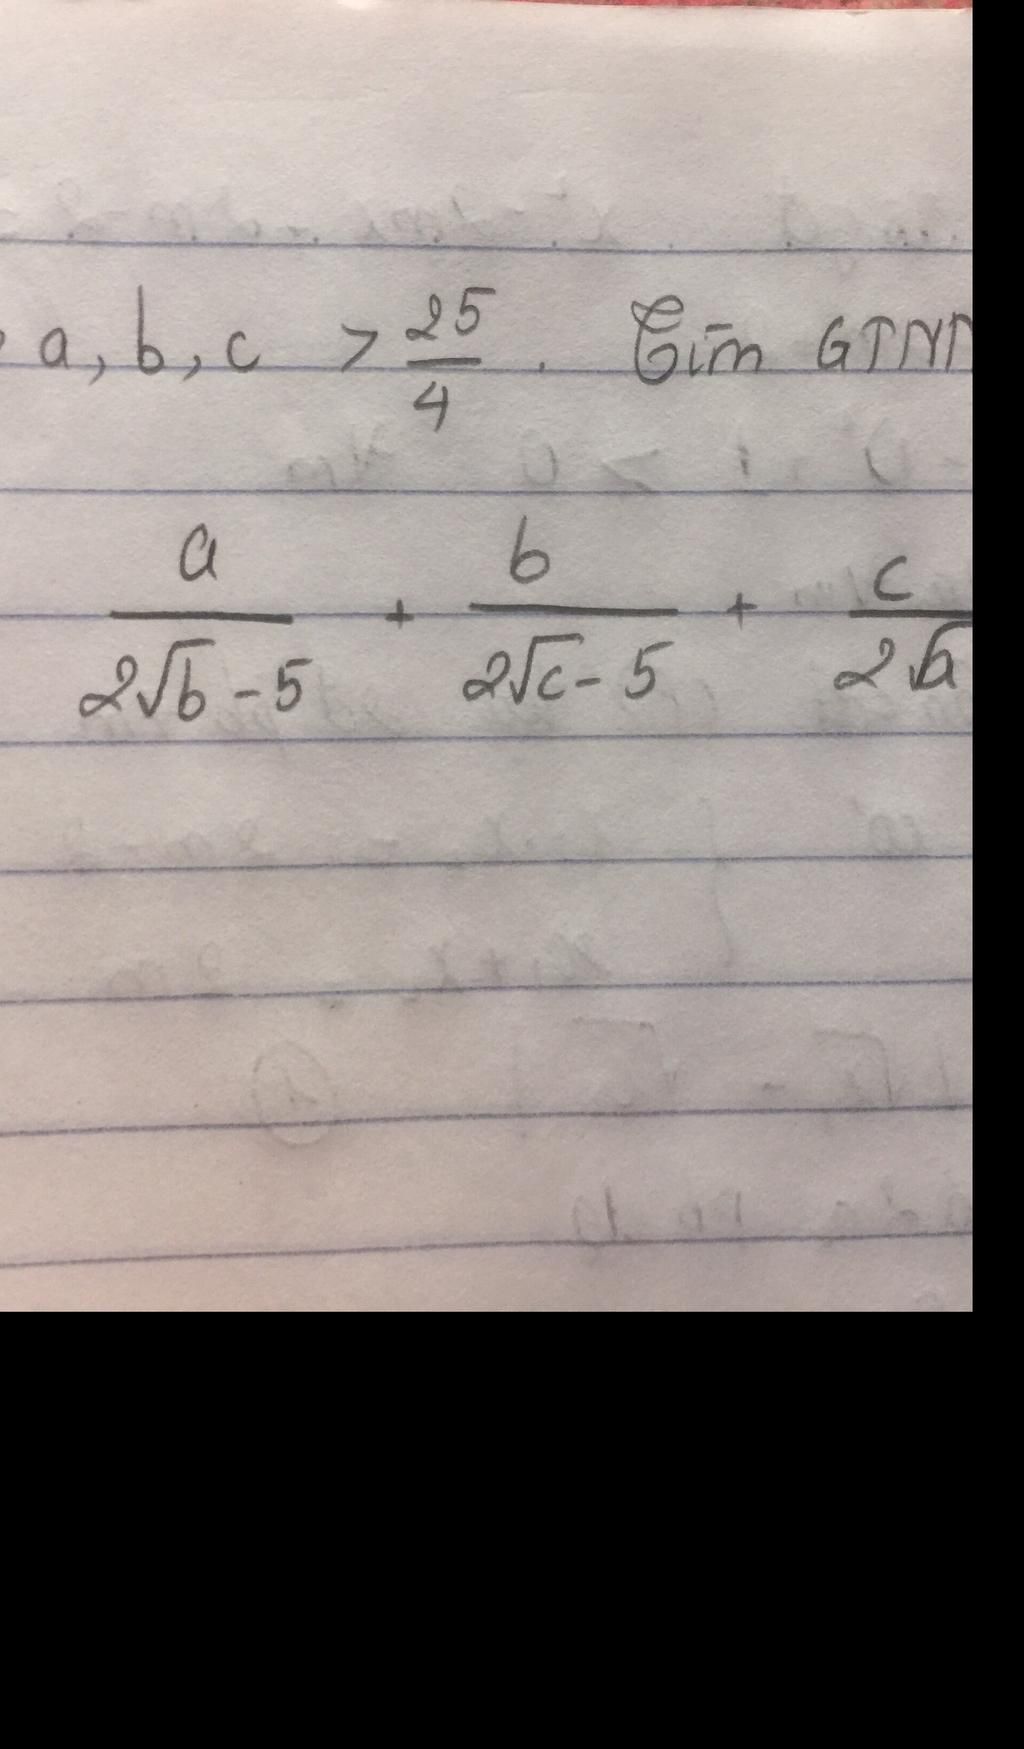 a, b, c > 25/4 . Tìm GTNN
a/(2√b - 5) + b/(2√c - 5) + c/(2√a